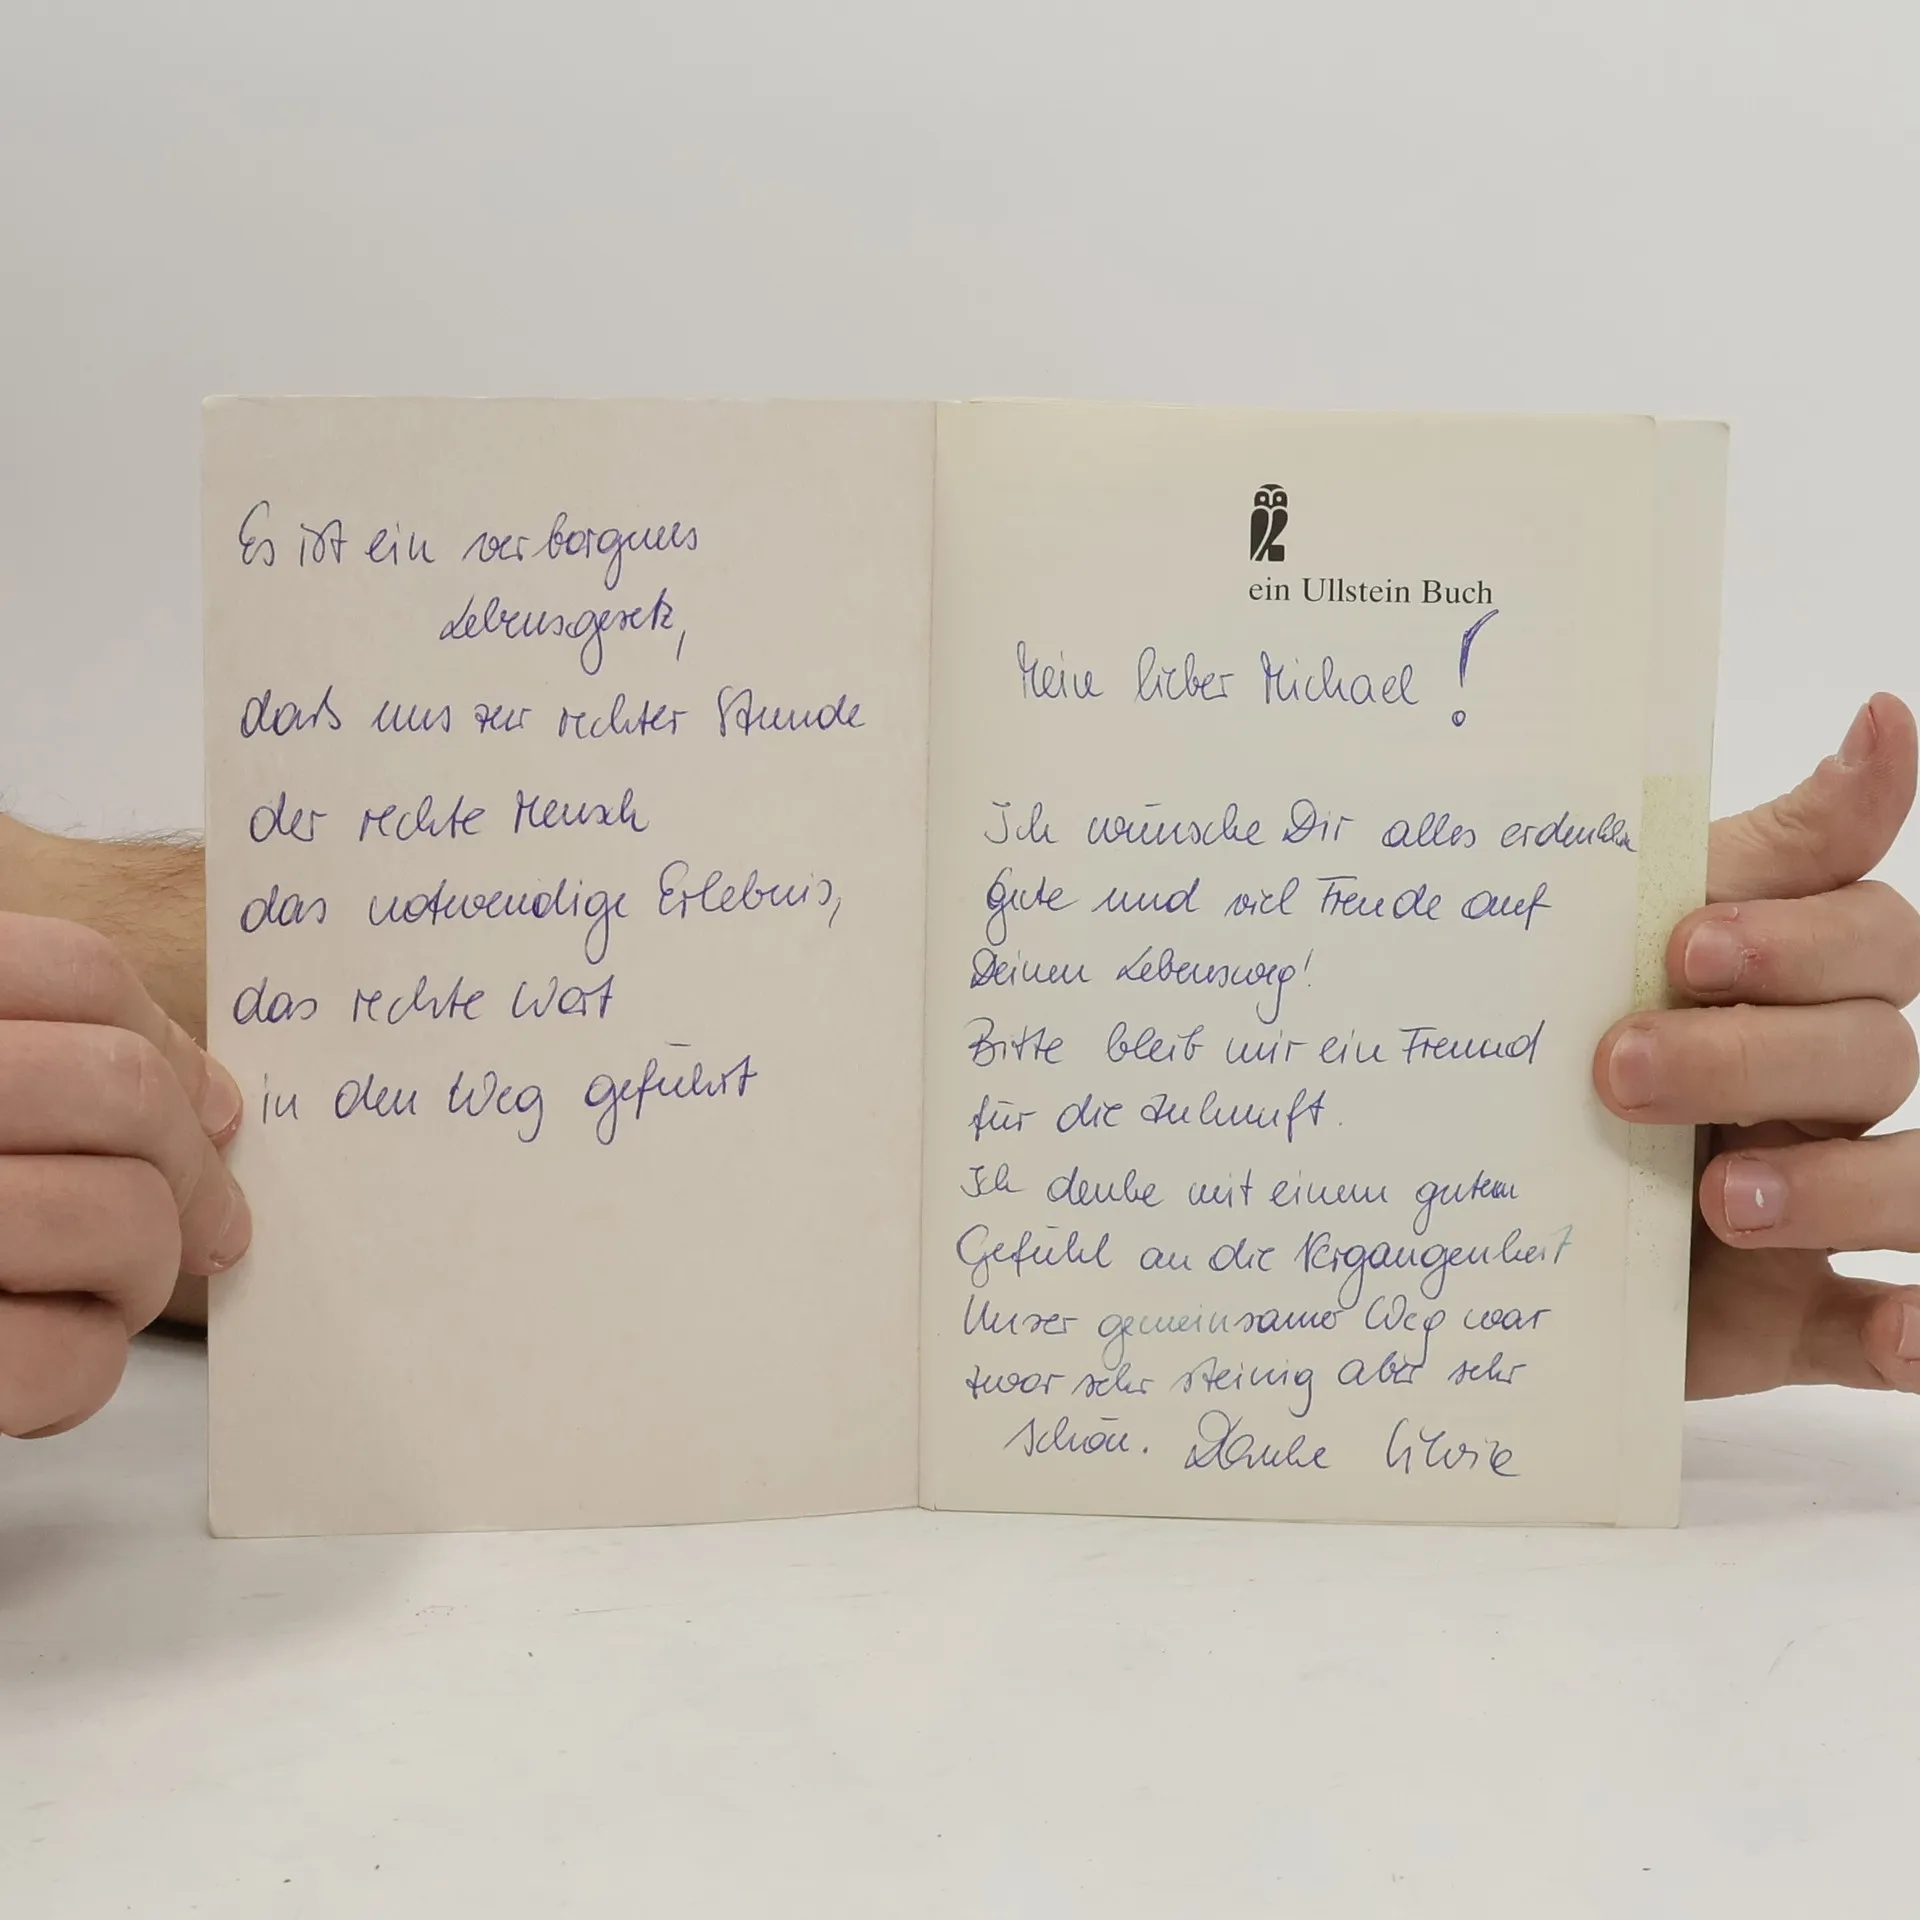 Es ist ein verborgnes
Lebensgesetz,
daß uns zur rechter Stunde
der rechte Mensch
das notwendige Erlebnis,
das rechte Wort
in den Weg geführt
ein Ullstein Buch
Mein lieber Michael!
Ich wünsche Dir alles erdenklich
Gute und viel Freude auf
Deinen Lebensweg!
Bitte bleib mir ein Freund
für die Zukunft.
Ich denke mit einem guten
Gefühl an die Vergangenheit
Unser gemeinsame Weg war
zwar sehr steinig aber sehr
schön. Danke Silvie